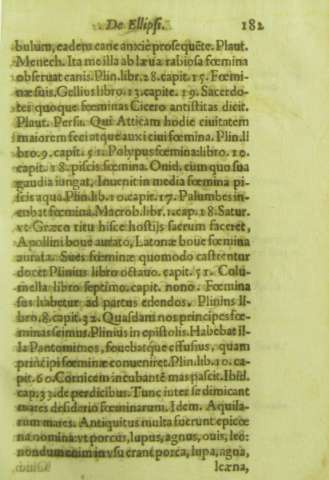 De Ellipsi. 182
bulum, eadem cane anxiè prosequēte. Plaut.
Menech. Ita me illa ab læua rabiosa fœmina
obseruat canis. Plin. libr. 28. capit. 15. Fœmi-
næ suis. Gellius libro. 13. capite. 19. Sacerdo-
tes quoque fœminas Cicero antistitas dicit.
Plaut. Persa. Qui Atticam hodie ciuitatem
maiorem feci atque auxi ciui fœmina. Plin. li
bro. 9. capit. 51. Polypus fœmina: libro. 10.
capit. 18. piscis fœmina. Ouid. cum quo sua
gaudia iungat, Inuenit in media fœmina pi-
scis aqua. Plin. lib. 10. capit. 17. Palumbes in-
cubat fœmina. Macrob. libr. 1. cap. 18. Satur.
vt Græco ritu hisce hostijs sacrum faceret,
Apollini boue aurato, Latonæ boue fœmina
aurata. Sues fœminæ quomodo castrentur
docet Plinius libro octauo. capit. 51. Colu-
mella libro septimo. capit. nono. Fœmina
sus habetur ad partus edendos. Plinius li-
bro. 8. capit. 32. Quasdam nos principes fœ-
minas scimus. Plinius in epistolis. Habebat il-
la Pantomimos, fouebatque effusius, quam
principi fœminæ conueniret. Plin. lib. 10. ca-
pit. 60. Cornicem incubantē mas pascit. Ibid.
cap. 33. de perdicibus. Tunc inter se dimicant
mares desiderio fœminarum. Idem. Aquila-
rum mares. Antiquitus multa fuerunt epicœ
na nomina: vt porcus, lupus, agnus, ouis, leo:
nondum enim in vsu erant porca, lupa, agna,
leæna,